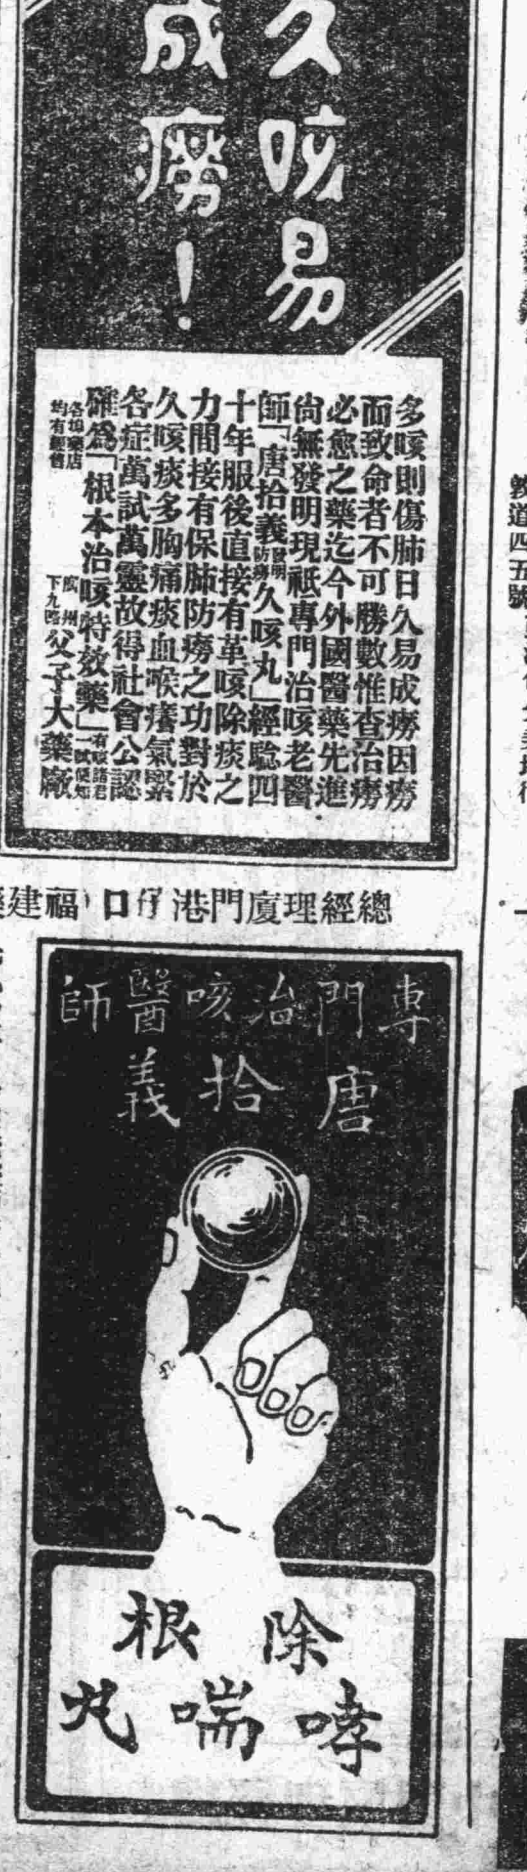 久咳易
成癆！
多咳則傷肺日久易成癆因癆
而致命者不可勝數惟查治癆
必愈之藥迄今外國醫藥先進
尚無發明現祇專門治咳老醫
師「唐拾義發明防癆久咳丸」經驗四
十年服後直接有革咳除痰之
力間接有保肺防癆之功對於
久咳痰多胸痛痰血喉癢氣緊
各症萬試萬靈故得社會公認
確為「根本治咳特效藥」有咳諸君一試便知
各埠藥店均有經售
廣州下九路父子大藥廠
總經理廈門港仔口福建
專門治咳醫師
唐拾義
除根
哮喘丸
教道四五號